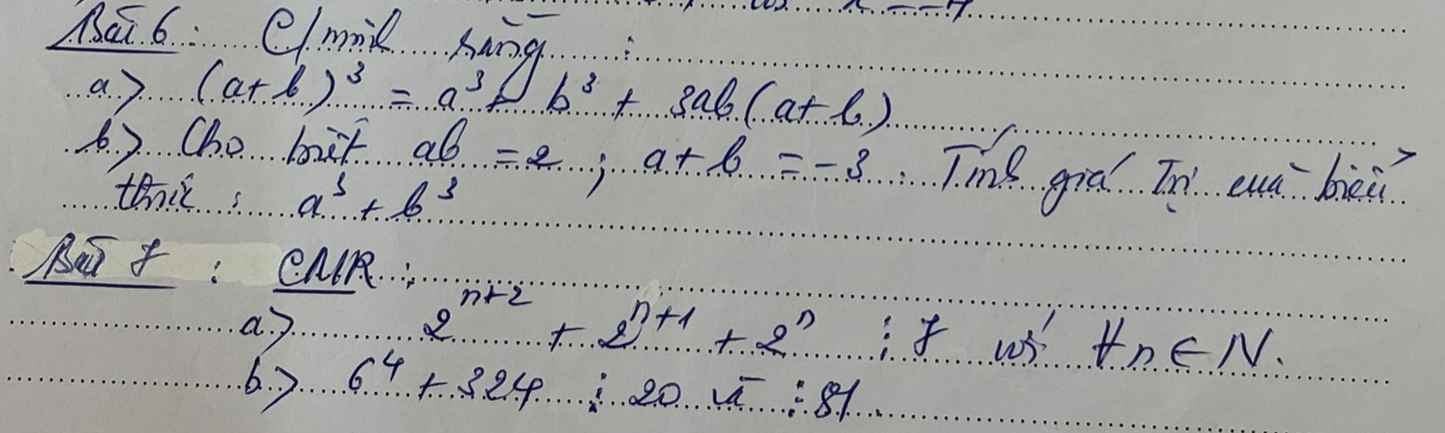 Bài 6 : C/minh rằng :
a> (a+b)³ = a³ + b³ + 3ab(a+b)
b> Cho biết ab = 2 ; a+b = -3 . Tính giá trị của biểu
thức : a³ + b³
Bài 7 : CMR :
a> 2ⁿ⁺² + 2ⁿ⁺¹ + 2ⁿ ⋮ 7 với ∀n ∈ N.
b> 6⁴ + 324 ⋮ 20 và ⋮ 81.